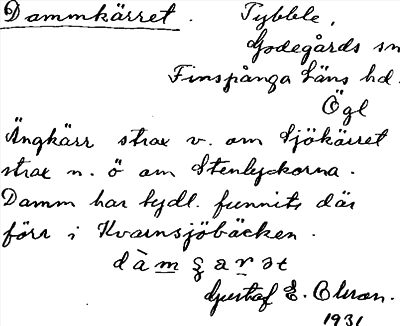 Dammkärret. Tybble,
Godegårds sn
Finspånga läns hd.
Ögl
Ängkärr strax v. om Sjökärret
strax n. ö om Stenlyckorna.
Damm har tydl. funnits där
förr i Kvarnsjöbäcken.
dàmʂarət
Gustaf E. Olsson.
1931